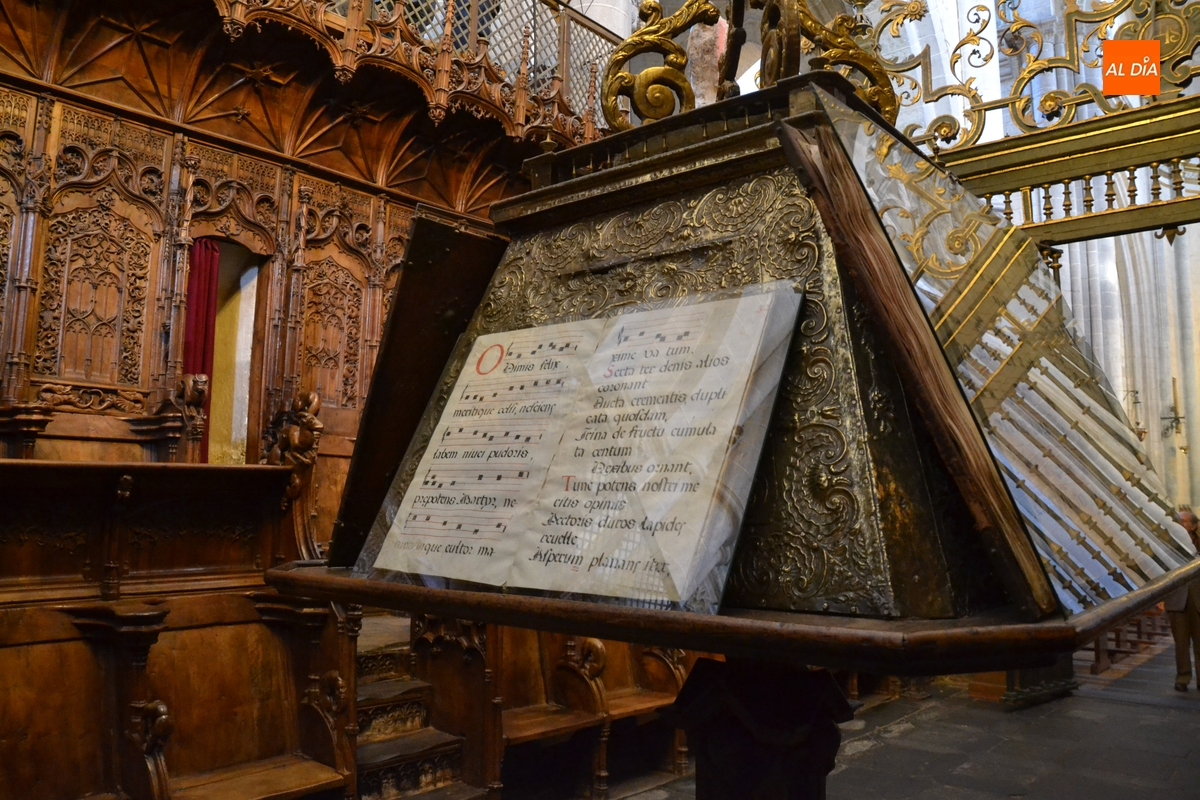 AL DÍA
O Nimis felix,
meritique celsi, nesciens
labem nivei pudoris,
prepotens Martyr, ne
cultor ma
xime va tum.
Serta ter denis alios
coronant
Aucta crementis dupli
cata quosdam,
Trina de fructu cumula
ta centum
Nexibus ornant,
Tunc potens nostri me
ritis opimis
Pectoris duros lapides
revelle,
Asperum planans iter